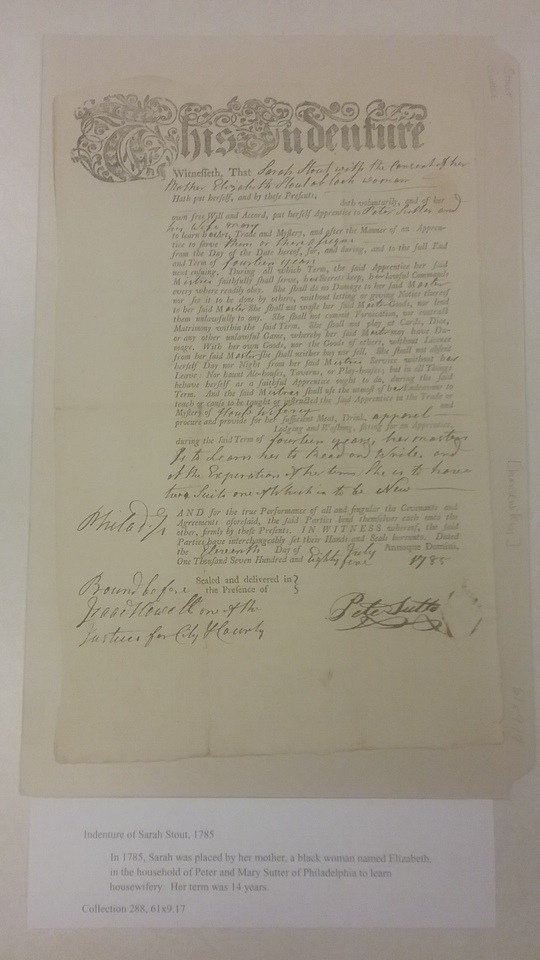 This Indenture
Witnesseth, That Sarah Stout with the Consent of her
Mother Elizabeth Stout a black woman
Hath put herself, and by these Presents, doth voluntarily, and of her
own free Will and Accord, put herself Apprentice to Peter Sutter and
his wife mary
to learn Art, Trade and Mystery, and after the Manner of an Appren-
tice to serve them or their assigns
from the Day of the Date hereof, for, and during, and to the full End
and Term of fourteen years
next ensuing. During all which Term, the said Apprentice her said
faithfully shall serve, secrets keep, lawful Commands
every where readily obey. She shall do no Damage to her said Master
nor see it to be done by others, without letting or giving Notice thereof
to her said Master She shall not waste her said Master Goods, nor lend
them unlawfully to any. She shall not commit Fornication, nor contract
Matrimony within the said Term. She shall not play at Cards, Dice,
or any other unlawful Game, whereby her said Master may have Da-
mage. With her own Goods, nor the Goods of others, without Licence
from her said Master she shall neither buy nor sell. She shall not absent
herself Day nor Night from her said Service without
Leave: Nor haunt Ale-houses, Taverns, or Play-houses; but in all Things
behave herself as a faithful Apprentice ought to do, during the said
Term. And the said shall use the utmost of Endeavour to
teach or cause to be taught or instructed the said Apprentice in the Trade or
Mystery of House wifery and
procure and provide for her sufficient Meat, Drink, apparel
Lodging and Washing, fitting for an Apprentice,
during the said Term of fourteen years, her master
Is to Learn her to Read and Write. and
at the Experation of her term She is to have
two Suits one of Which is to be New
AND for the true Performance of all and singular the Covenants and
Agreements aforesaid, the said Parties bind themselves each unto the
other, firmly by these Presents. IN WITNESS whereof, the said
Parties have interchangeably set their Hands and Seals hereunto. Dated
the Day of July Annoque Domini,
One Thousand Seven Hundred and Eighty five 1785
Philad. Ss
Sealed and delivered in
the Presence of
Bound before
Isaac Howell one of the
Justices for City & County
Peter Sutter
Indenture of Sarah Stout, 1785
In 1785, Sarah was placed by her mother, a black woman named Elizabeth,
in the household of Peter and Mary Sutter of Philadelphia to learn
housewifery. Her term was 14 years.
Collection 288, 61x9.17